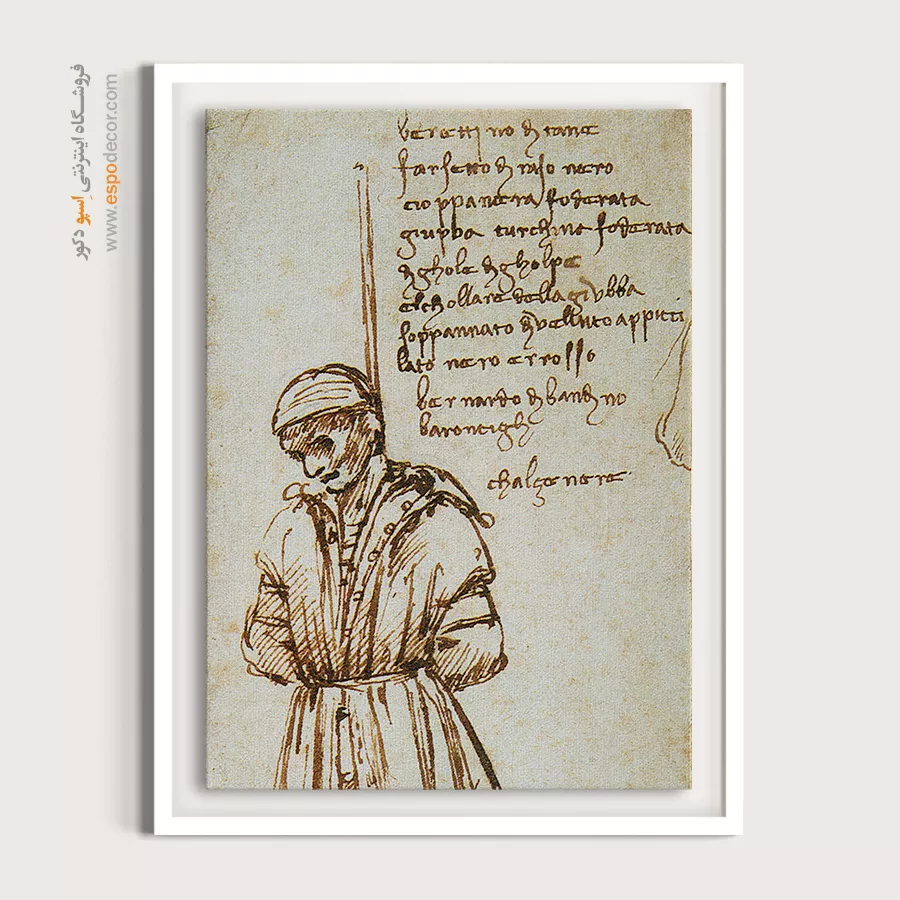 فروشگاه اینترنتی اِسپو دکور
www.espodecor.com
berettino di tane
farsetto di raso nero
cioppa nera foderata
giubba turchina foderata
di ghole di gholpe
elchollare della giubba
soppannato di velluto appicci
lato nero e rosso
bernardo di bandino
barontigli
chalze nere